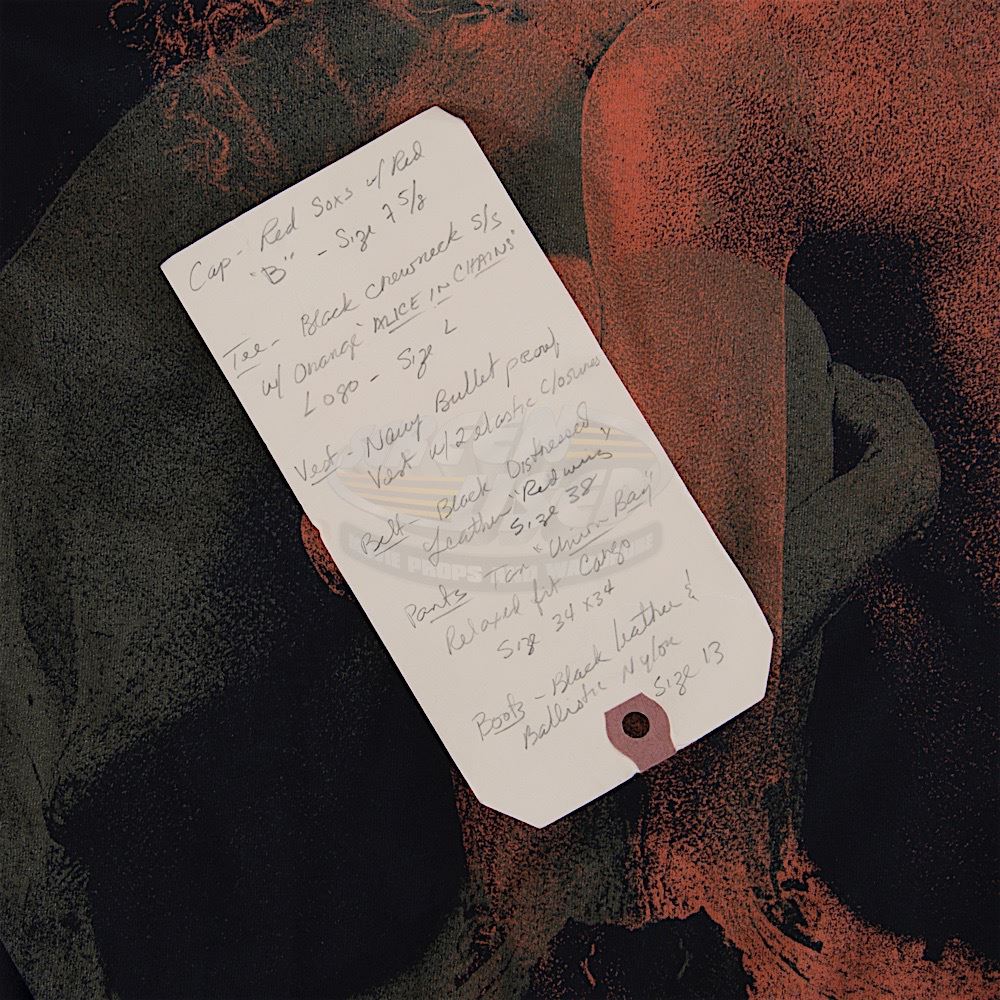 Cap - Red Soxs w/ Red
"B" - Size 7 5/8
Tee - Black Crewneck S/S
w/ Orange "ALICE IN CHAINS"
Logo - Size L
Vest - Navy Bullet proof
Vest w/ 2 elastic closures
Belt - Black Distressed
Leather "Redwing"
Size 38
Pants Tan "Union Bay"
Relaxed fit Cargo
Size 34 x 34
Boots - Black leather &
Ballistic Nylon
Size 13